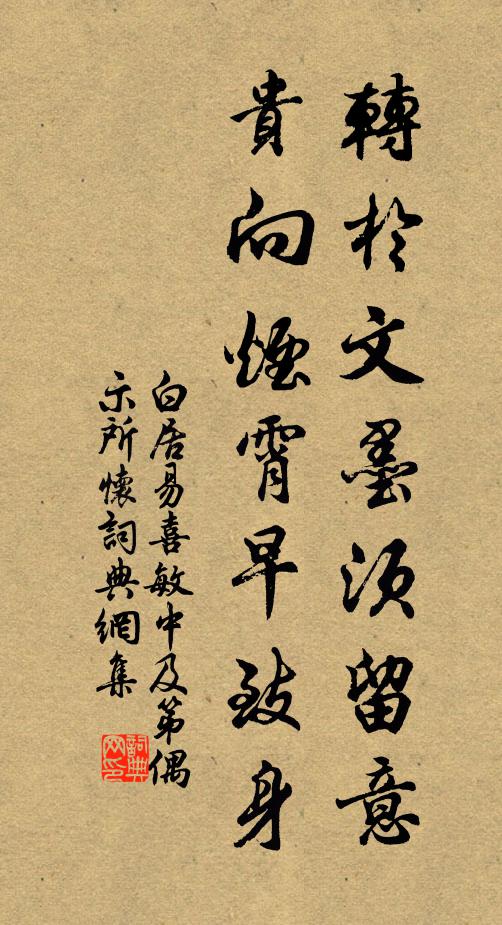 轉於文墨須留意
貴向煙霄早致身
白居易喜敏中及第偶
示所懷詞典網集
詞典
網印